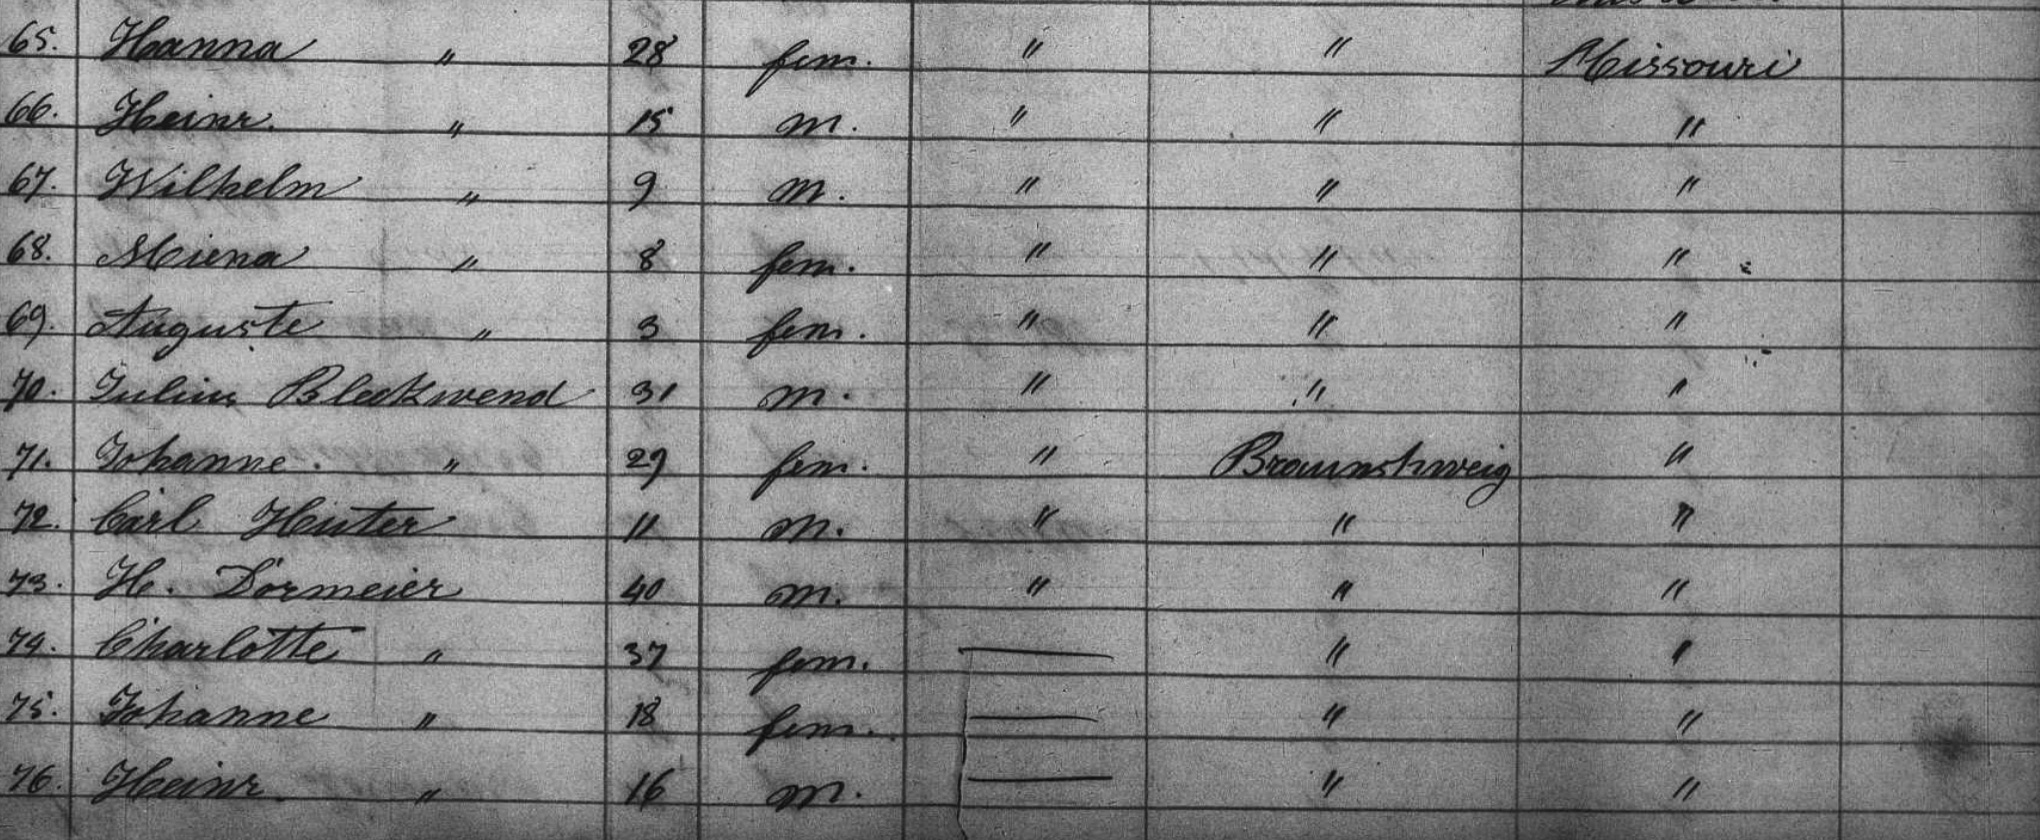 65. Hanna " 28 fem. " " Missouri
66. Heinr. " 15 m. " " "
67. Wilhelm " 9 m. " " "
68. Miena " 8 fem. " " "
69. Auguste " 3 fem. " " "
70. Julius Bleckwend 31 m. " " "
71. Johanne. " 29 fem. " Braunshweig "
72. Carl Huter 11 m. " " "
73. H. Dörmeier 40 m. " " "
74. Charlotte " 37 fem. — " "
75. Johanne " 18 fem. — " "
76. Heinr. " 16 m. — " "